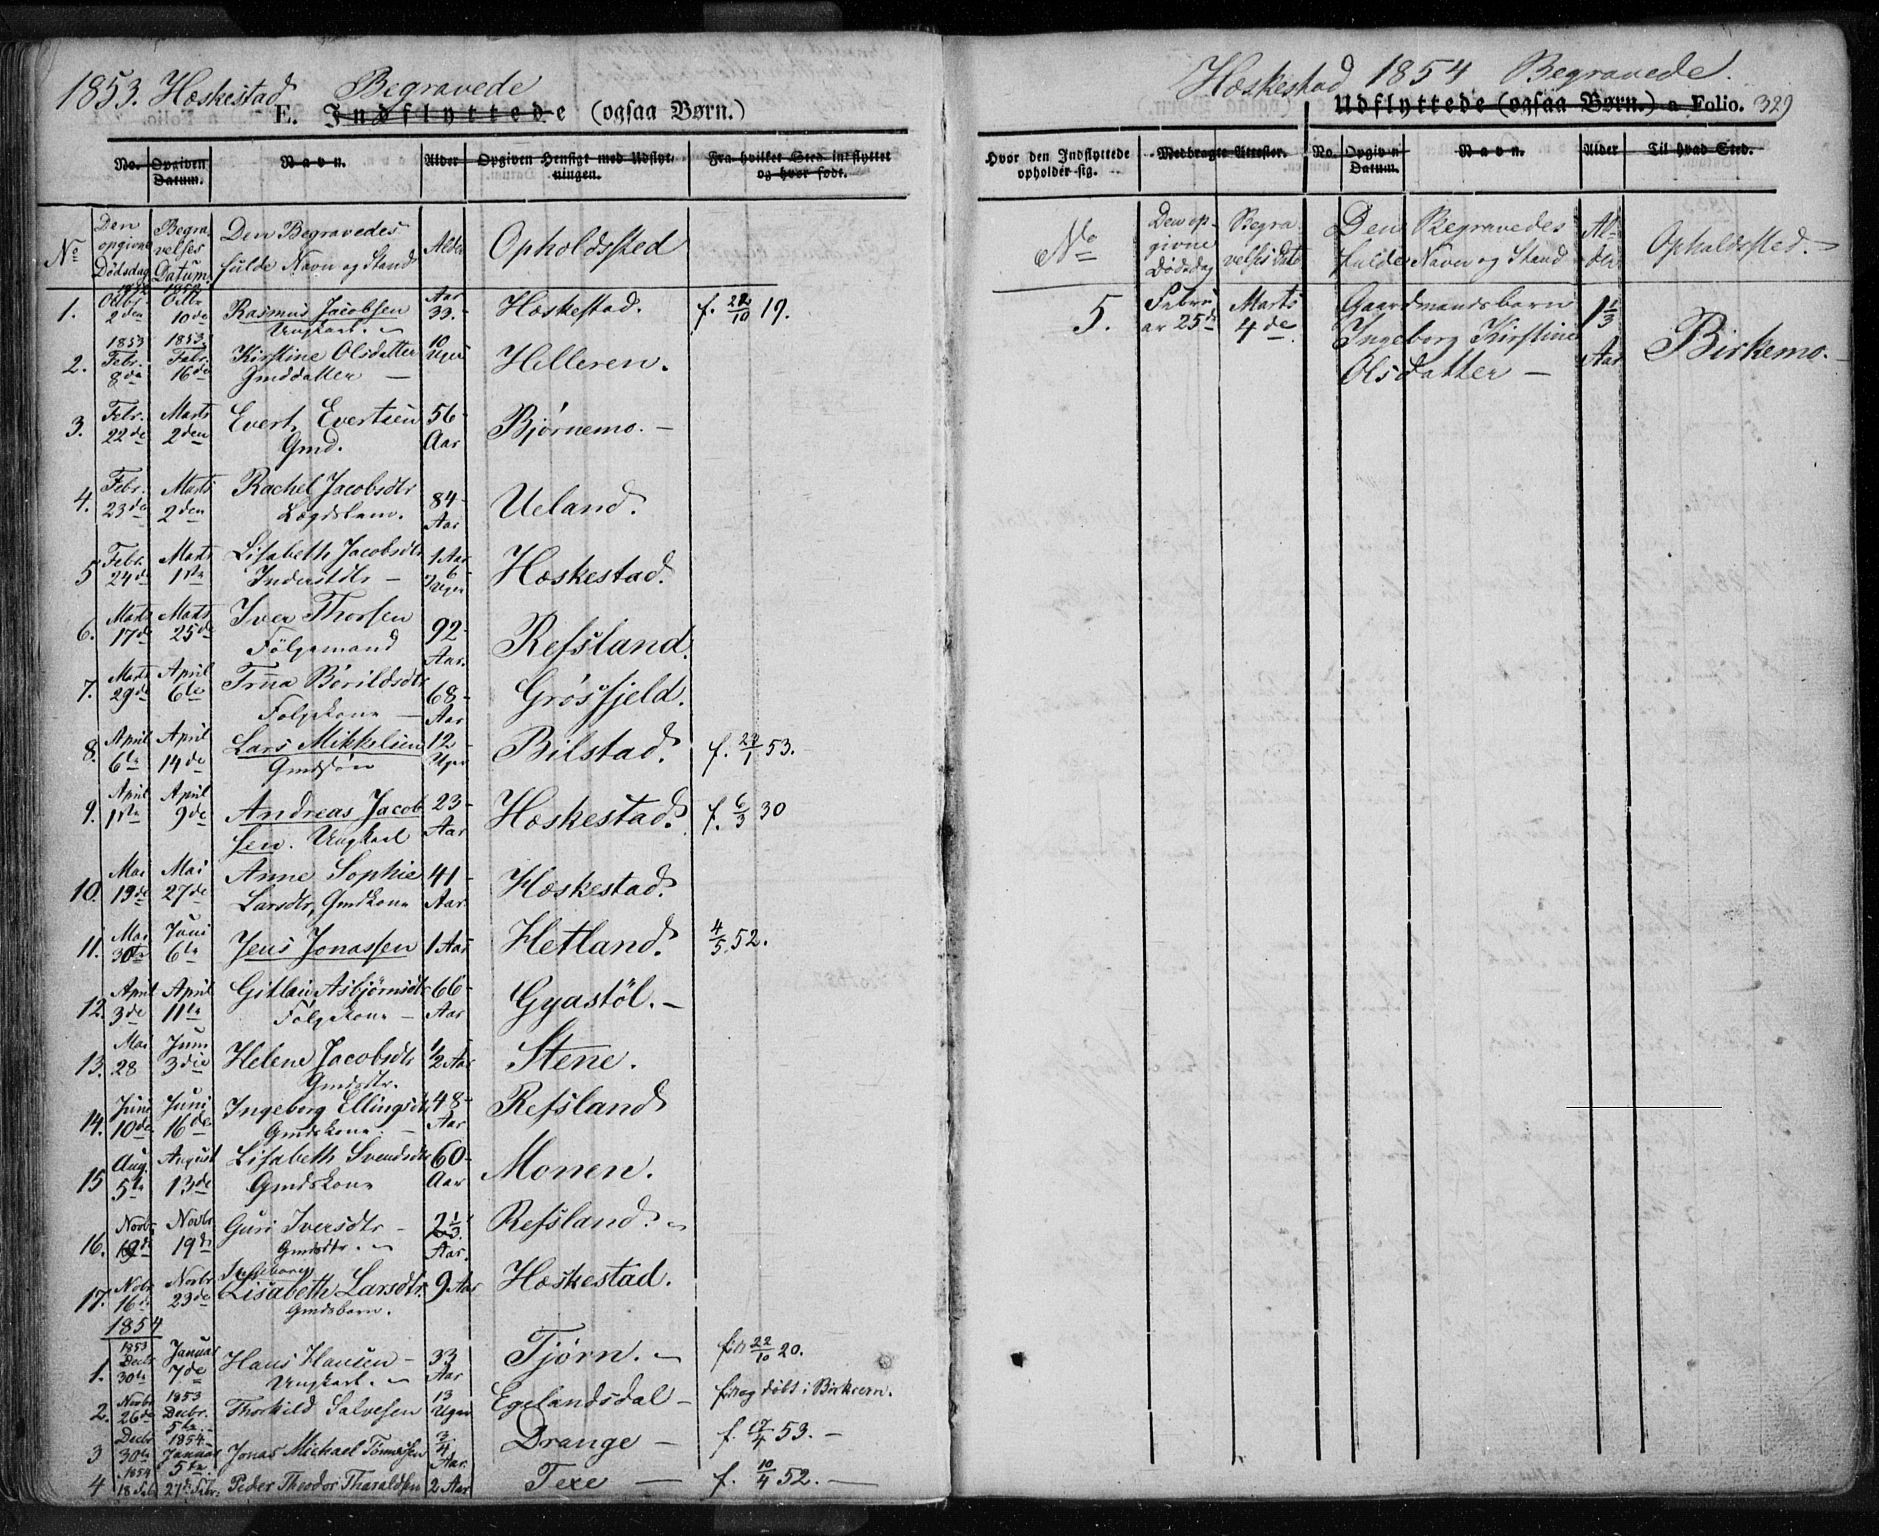 1853. Hæskestad Begravede
E. Indflyttede (ogsaa Børn.)
No. Opgiven Datum. Navn. Alder Opgiven Hensigt med Udflytningen. Fra hvilket Sted indflyttet og hvor født.
No Den opgivne Dødsdag Begravelses Datum Den Begravedes fulde Navn og Stand Alder Opholdssted
1. 1852 Octbr. 2den 1852 Octbr 10de Rasmus Jacobsen Ungkarl. 33. Aar Hæskestad. f. 22/10 19.
2. 1853 Febr. 8de 1853 Febr. 16de Kirstine Olsdatter Gmddatter 10 Uger Helleren.
3. Febr. 22de Marts 2den Evert Evertsen Gmd. 56 Aar Bjørnemo. –
4. Febr. 23de Marts 2den Rachel Jacobsdtr Lægdslem. 84 Aar Ueland.
5 Febr. 24de Marts 1ste Lisabeth Jacobsdtr Inderstdtr – 1 Aar 6 Uger Hæskestad.
6. Marts 17de Marts 25de Iver Thorsen Følgemand 92 Aar. Refsland.
7. Marts 29de April 6te Trina Børildsdtr Følgekone – 68 Aar Grøsfjeld.
8. April 6te April 14de Lars Mikkelsen Gmdsøn 12 Uger Bilstad. f. 24/1 53.
9. April 1ste April 9de Andreas Jacobsen. Ungkarl 23 Aar Hæskestad. f. 6/3 30
10. Mai 19de Mai 27de Anne Sophie Larsdtr, Gmdkone 41 Aar. Hæskestad.
11. Mai 30te Juni 6te Jens Jonassen 1 Aar Hetland. 4/5 52.
12. April 3de April 11te Gitlau Asbjørnsdtr Følgekone – 66 Aar Gyastöl. –
13. Mai 28 Juni 3die Helene Jacobsdtr Gmdsdtr. 1/2 Aar Stene.
14. Juni 10de Juni 16de Ingeborg Ellingsdtr Gmdskone. – 48 Aar Refsland
15 Aug. 5te August 13de Lisabeth Svendsdtr Gmdskone 60 Aar Monen.
16. Novbr 19de Guri Iversdtr – Gmdsdtr. 2 1/3 Aar. Refsland.
17. Nobr 16de Novbr 23de Ingeborg Lisabeth Larsdtr. Gmdsbarn. 9 Aar Hæskestad.
1854
1. 1853 Decbr 30te Januar 7de Hans Hansen – Ungkarl. 33 Aar Tjørn. 22/10 20.
2. Novbr 26de 1853 Decbr. 5te Thorkild Salvesen 13 Uger Egelandsdal – f. og døbt i Birkrem.
3 Decbr 30te 1854 Januar 5te Jonas Michael Tønnessen 3/4 Aar. Drange – f. 17/4 53. –
4 1854 18 Feb 27de Febr. Peder Theodor Tharaldsen 2 Aar Texe – f. 10/4 52. –
Hæskestad 1854 Begravede.
Udflyttede (ogsaa Børn.) a Folio. 329
Hvor den Indflyttede opholder sig. Medbragte Attester. No. Opgiven Datum. Navn. Alder Til hvad Sted.
No Den opgivne Dødsdag Begravelses Dato Den Begravedes fulde Navn og Stand Alder Opholdssted. –
5. Februar 25de Marts 4de Gaardmandsbarn Ingeborg Kirstine Olsdatter – 1 1/3 Aar Birkemo. –